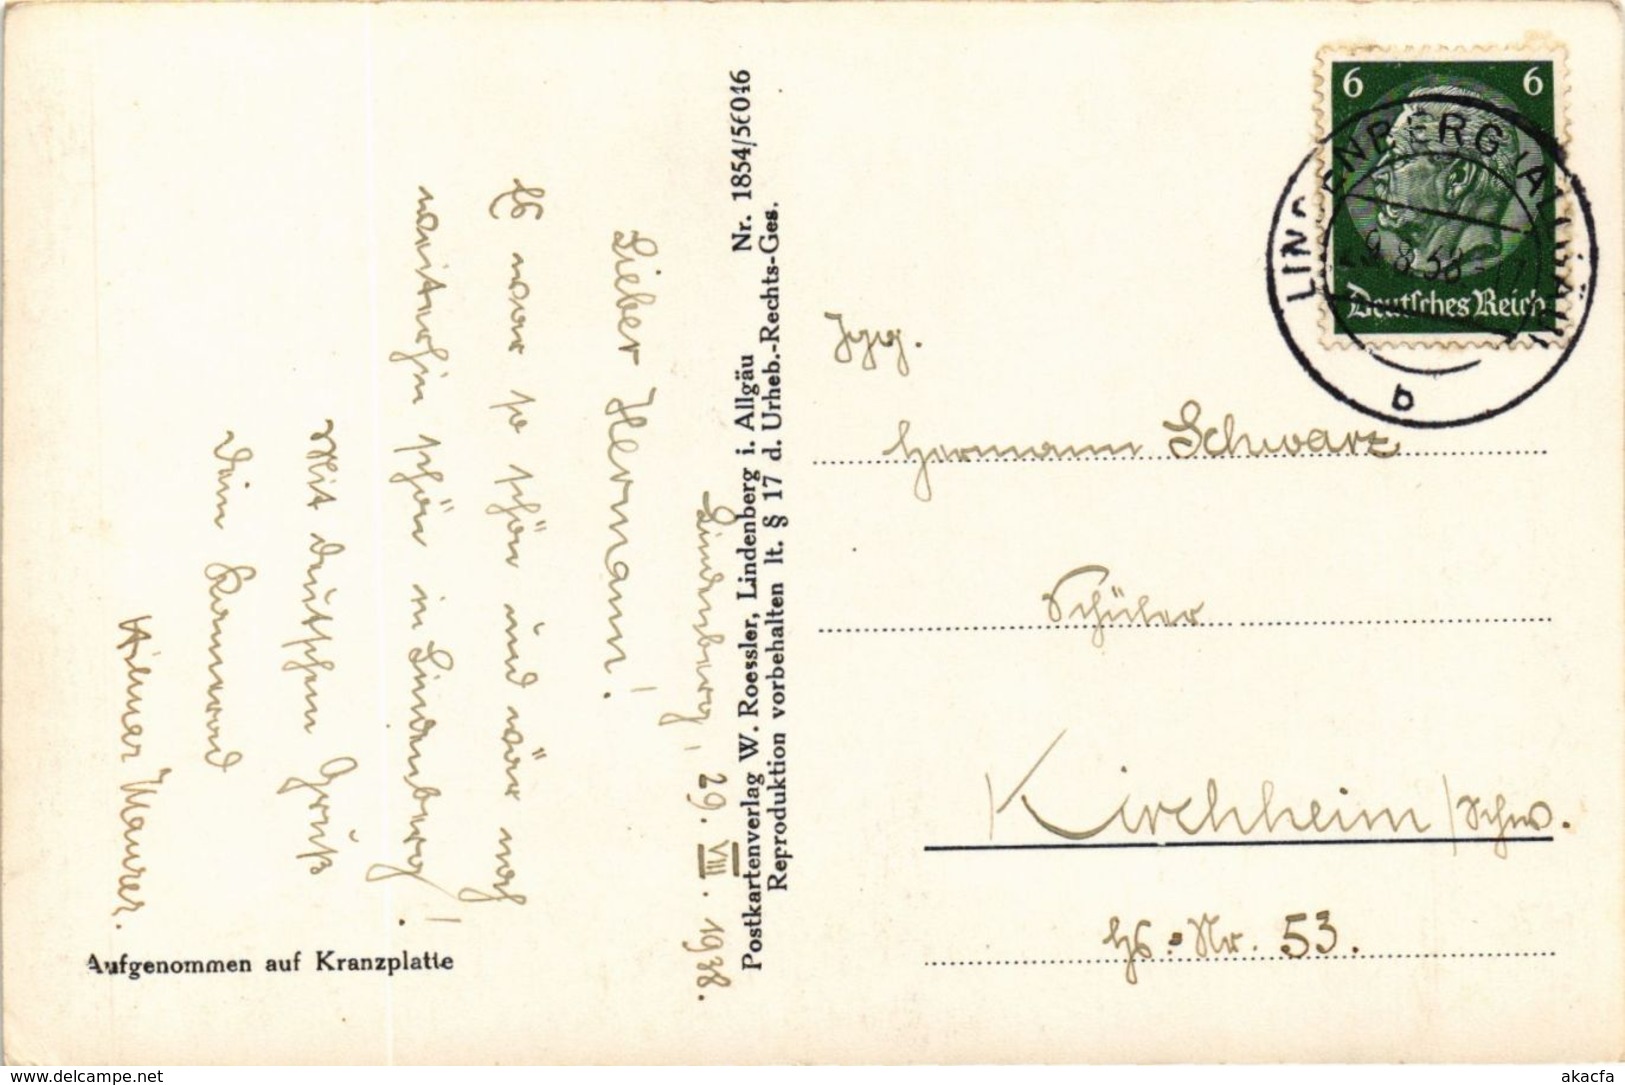 Lindenberg, 29. VIII. 1938.
Lieber Hermann!
Es war so schön und wär noch
weiterhin schön in Lindenberg!
Mit deutschem Gruß
Dein Kamerad
Maurer.
Aufgenommen auf Kranzplatte
Postkartenverlag W. Roessler, Lindenberg i. Allgäu Nr. 1854/56046
Reproduktion vorbehalten lt. § 17 d. Urheb.-Rechts-Ges.
6 6
Deutsches Reich
LINDENBERG (ALLGÄU)
29.8.38
b
Hermann Schwarz
Schüler
Kirchheim / Schw.
Hs.-Nr. 53.
https://www.akpool.de
akacfa